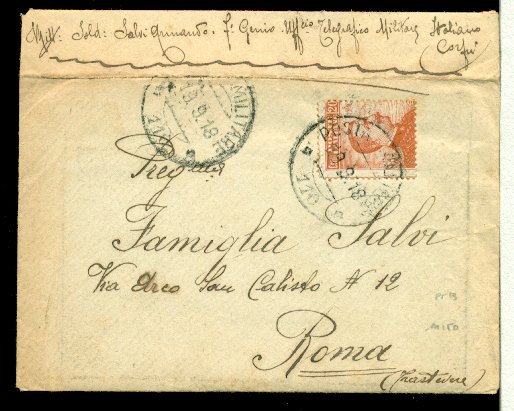 Mitt: Sold: Salvi Armando. 7º Genio Ufficio Telegrafico Militare Italiano
Corfù
MILITARE
18.9.18
POSTA MILITARE
18.9.18
Preg.
Famiglia Salvi
Via Arco San Calisto N 12
Roma
(Trastevere)